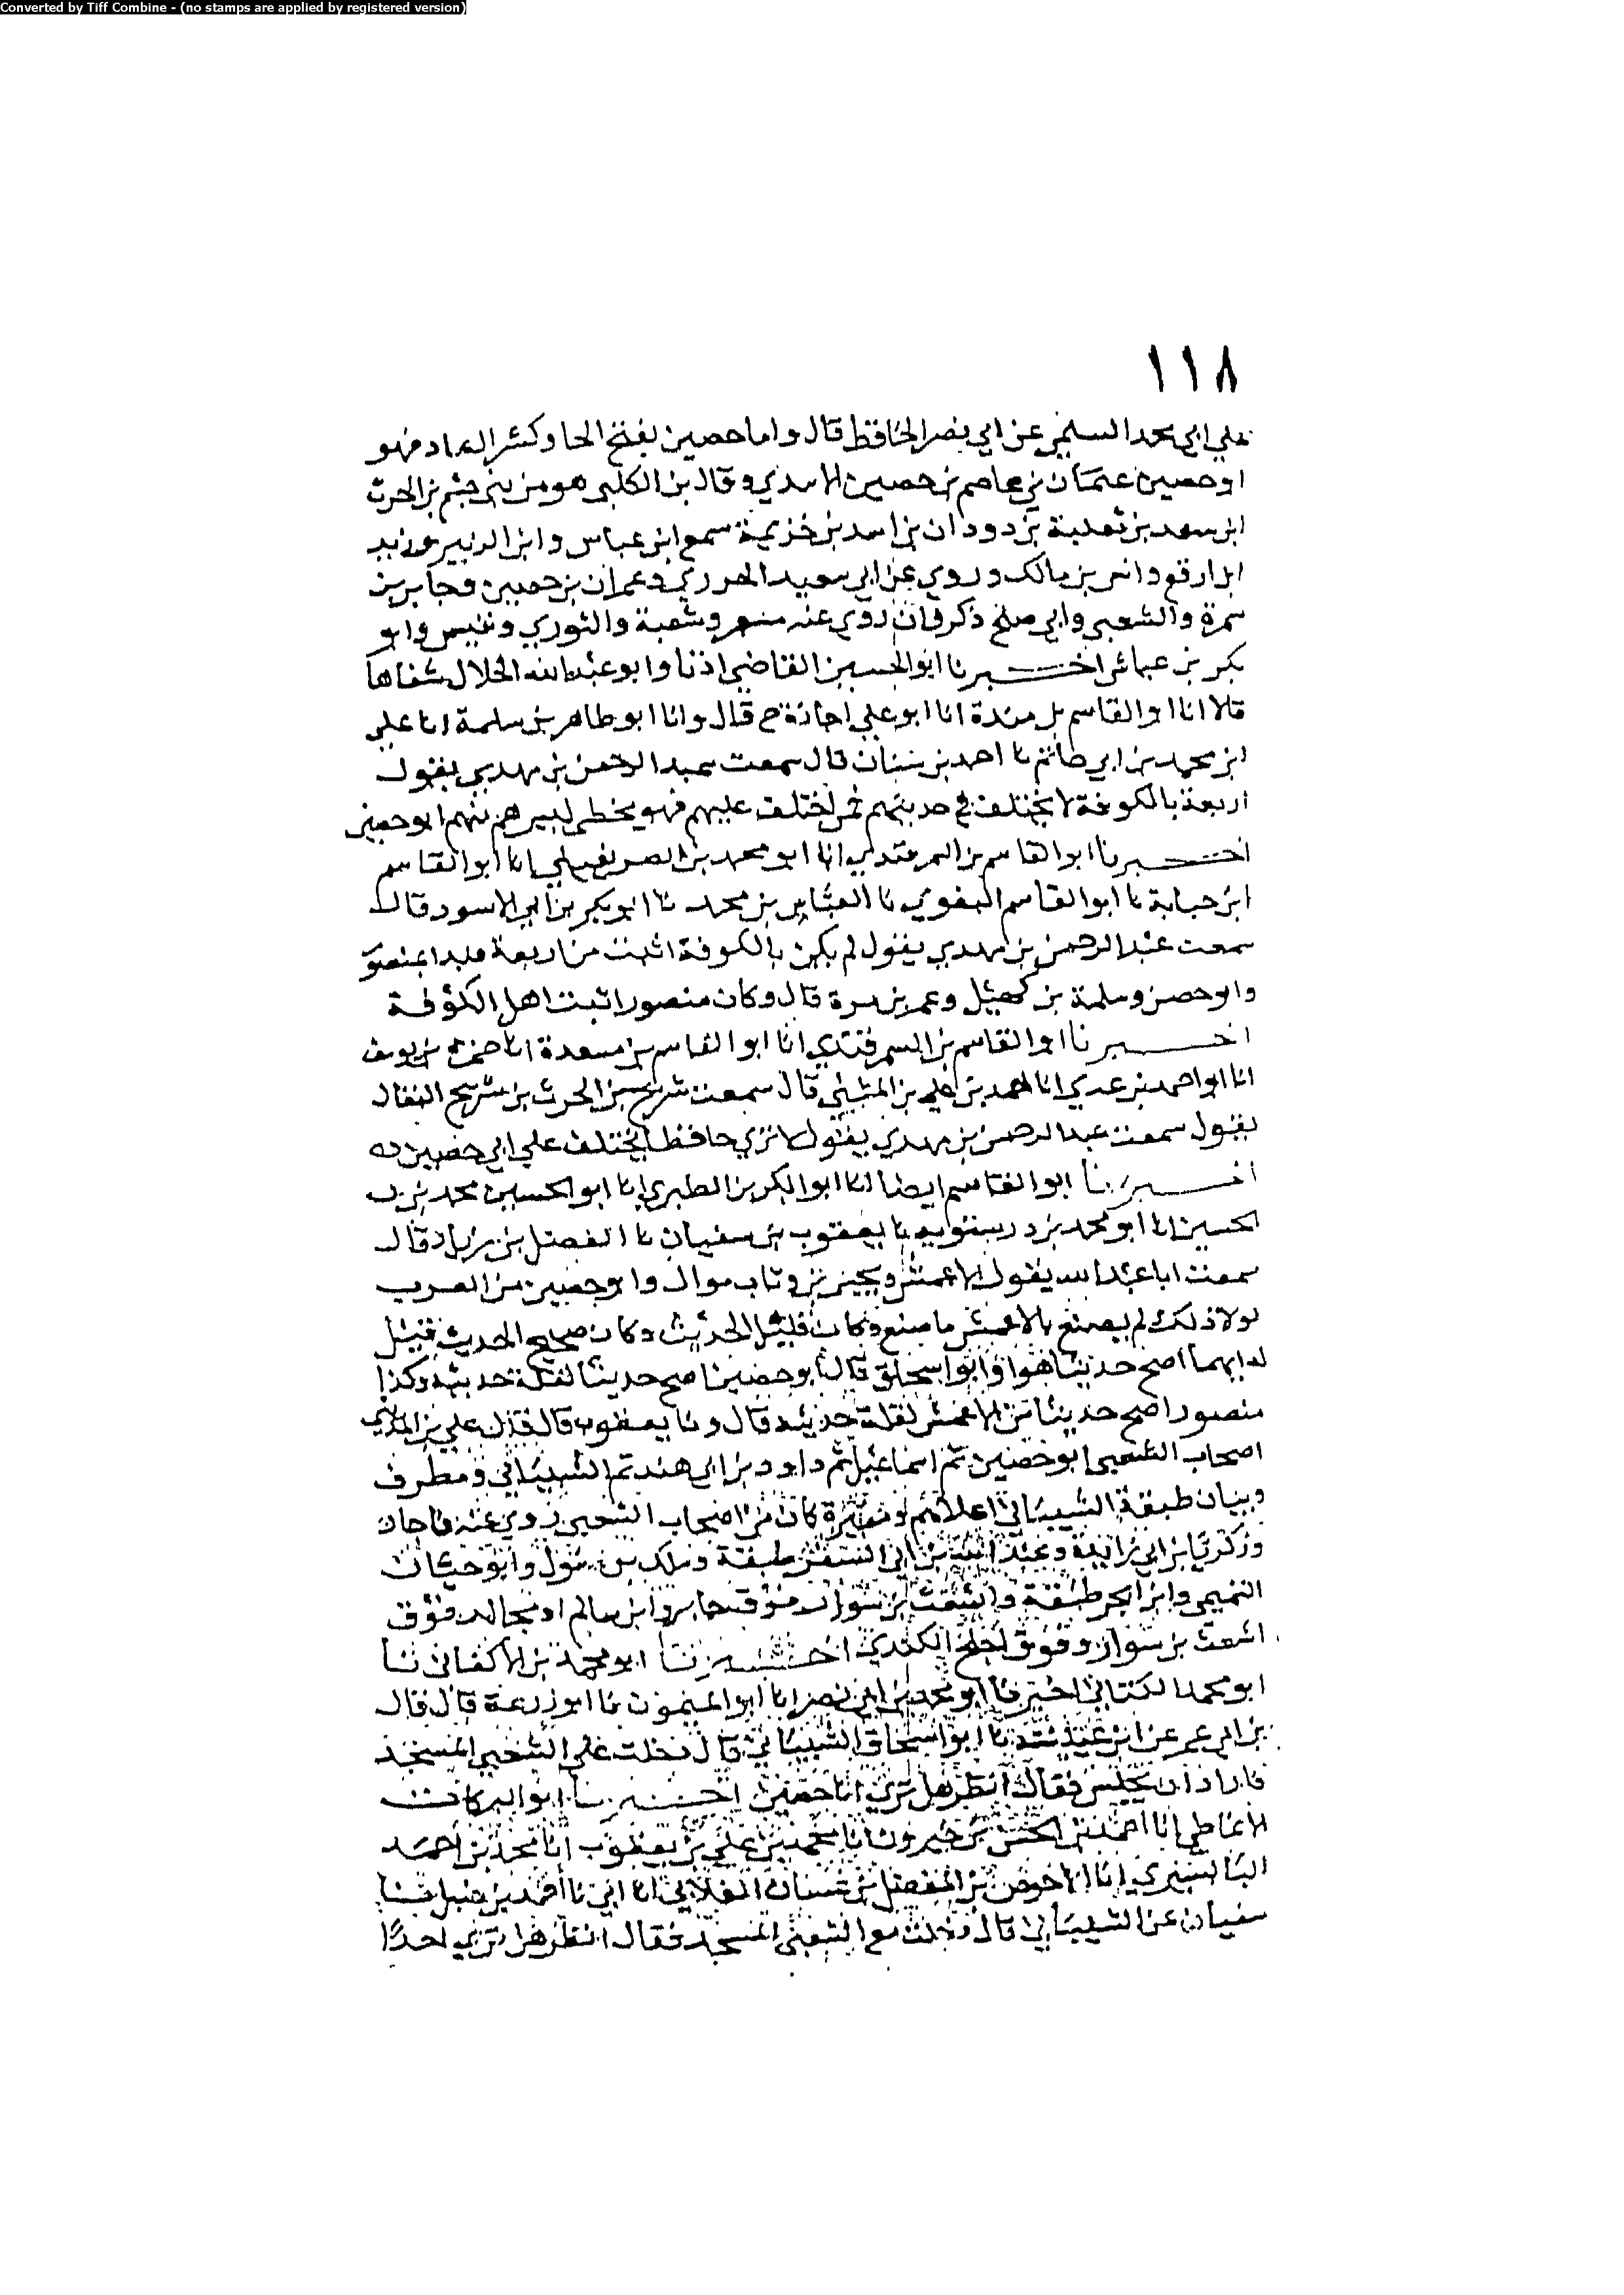 Converted by Tiff Combine - (no stamps are applied by registered version)
١١٨
علي ابي محمد السلمي عن ابي نصر الحافظ قال واما حصين بفتح الحا وكسر الصاد فهو
ابوحصين عثمان بن عاصم بن حصين الاسدي وقال بن الكلبي هو من بني جشم بن الحرث
ابن سعد بن ثعلبة بن دودان بن اسد بن خزيمة سمع ابن عباس وابن الزبير وزيد
ابن ارقم وانس بن مالك وروي عن ابي سعيد الخدري وعمران بن حصين وجابر بن
سمرة والشعبي وابي صلح ذكوان روي عنه مسعر وشعبة والثوري وقيس وابو
بكر بن عياش اخبرنا ابو الحسين القاضي اذنا وابو عبد الله الخلال شفاها
قالا انا ابو القاسم بن مندة انا ابو علي اجازة ح قال وانا ابو طاهر بن سلمة انا علي
ابن محمد بن ابي حاتم نا احمد بن سنان قال سمعت عبد الرحمن بن مهدي يقول
اربعة بالكوفة لا يختلف في حديثهم فمن اختلف عليهم فهو يخطي ليس هم منهم ابو حصين
اخبرنا ابو القاسم بن السمرقندي انا ابو محمد بن الصريفيني انا ابو القاسم
ابن حبابة نا ابو القاسم البغوي نا العباس بن محمد نا ابو بكر بن ابي الاسود قال
سمعت عبد الرحمن بن مهدي يقول لم يكن بالكوفة اثبت من اربعة فبدا بمنصور
وابو حصين وسلمة بن كهيل وعمر بن مرة قال وكان منصور اثبت اهل الكوفة
اخبرنا ابو القاسم بن السمرقندي انا ابو القاسم بن مسعدة انا حمزة بن يوسف
انا ابو احمد بن عدي انا احمد بن علي بن المثني قال سمعت شريح بن الحرث بن شريح النقال
يقول سمعت عبد الرحمن بن مهدي يقول لا تري حافظ يختلف علي ابي حصين
اخبرنا ابو القاسم ايضا انا ابو بكر بن الطبري انا ابو الحسين محمد بن
الحسين انا ابو محمد بن درستويه نا يعقوب بن سفيان نا الفضل بن زياد قال
سمعت ابا عبد الله يقول الاعمش ويحيى بن وثاب موال وابو حصين من العرب
لولا ذلك لم يصنع بالاعمش ما صنع وكان قليل الحديث وكان صحيح الحديث قيل
له ايهما اصح حديثا هو او ابو اسحاق قال ابو حصين اصح حديثا لقلة حديثه وكذا
منصور اصح حديثا من الاعمش لقلة حديثه قال ونا يعقوب قال قال علي بن المديني
اصحاب الشعبي ابو حصين ثم اسماعيل ثم داود بن ابي هند ثم الشيباني ومطرف
وبيان طبقة الشيباني اعلاهم ومغيرة كان من اصحاب الشعبي روي عنه فاجاد
وزكريا بن ابي زائدة وعبد الله بن ابي السفر طبقة ومالك بن مغول وابو حيان
التيمي وابن ابجر طبقة واشعث بن سوار فوق جابر وابن سالم او مجالد فوق
اشعث بن سوار وفوق اجلح الكندي اخبرنا ابو محمد بن الاكفاني نا
ابو محمد الكتاني اخبرنا ابو محمد بن ابي نصر انا ابو الميمون نا ابو زرعة قال قال
بن ابي عمر عن ابن عيينة نا ابو اسحاق الشيباني قال دخلت علي الشعبي المسجد
فاراد ان يجلس فقال انظر هل تري ابا حصين اخبرنا ابو البركات
الانماطي انا احمد بن الحسن بن خيرون انا محمد بن علي بن يعقوب انا محمد بن احمد
البابسيري انا الاحوص بن المفضل بن غسان الغلابي انا ابي نا احمد بن حنبل نا
سفيان عن الشيباني قال دخلت مع الشعبي المسجد فقال انظر هل تري احدا